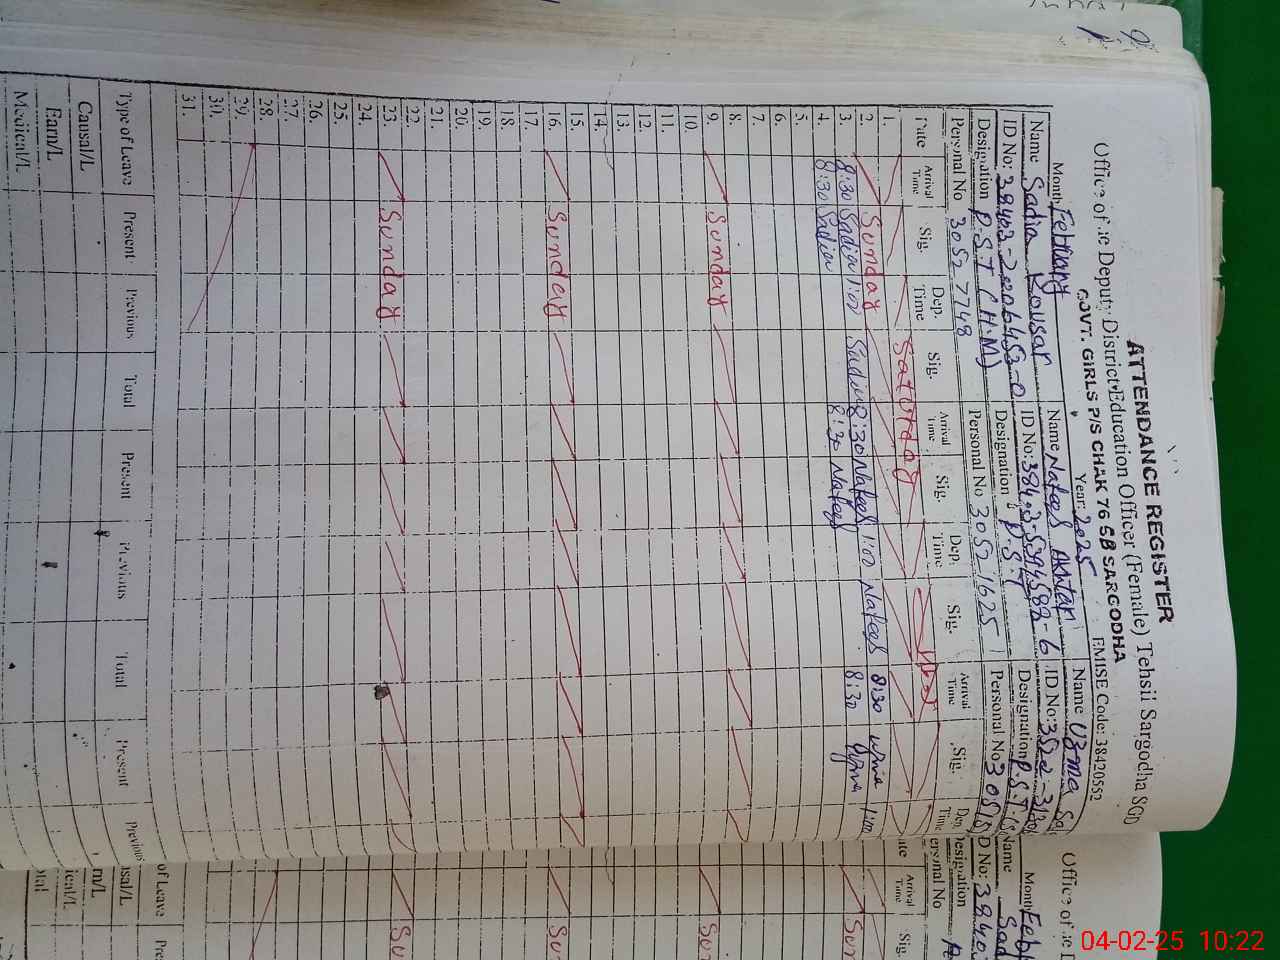 ATTENDANCE REGISTER
Office of the Deputy District Education Officer (Female) Tehsil Sargodha SGD
GOVT. GIRLS P/S CHAK 76 SB SARGODHA EMISE Code: 38420552
Month February Year 2025
Name Sadia Kousar Name Nafees Akhtar Name Uzma
ID No: 38403-2006453-0 ID No: 38403-5394582-6 ID No:
Designation P.S.T (H.M) Designation P.S.T Designation P.S.T
Personal No 30527748 Personal No 30521625 Personal No
Date Arrival Time Sig. Dep. Time Sig. Arrival Time Sig. Dep. Time Sig. Arrival Time Sig. Dep. Time
1. Saturday
2. Sunday
3. 8:30 Sadia 1:00 Sadia 8:30 Nafees 1:00 Nafees 8:30 Uzma 1:00
4. 8:30 Sadia 8:30 Nafees 8:30 Uzma
5.
6.
7.
8.
9. Sunday
10.
11.
12.
13.
14.
15.
16. Sunday
17.
18.
19.
20.
21.
22.
23. Sunday
24.
25.
26.
27.
28.
29.
30.
31.
Type of Leave Present Previous Total Present Previous Total Present Previous
Causal/L
Earn/L
Medical/L
Office of
Month Feb
Name Sad
ID No:
Designation
Personal No
Date Arrival Time Sig.
Sun
Su
Su
Su
of Leave Pre
04-02-25 10:22